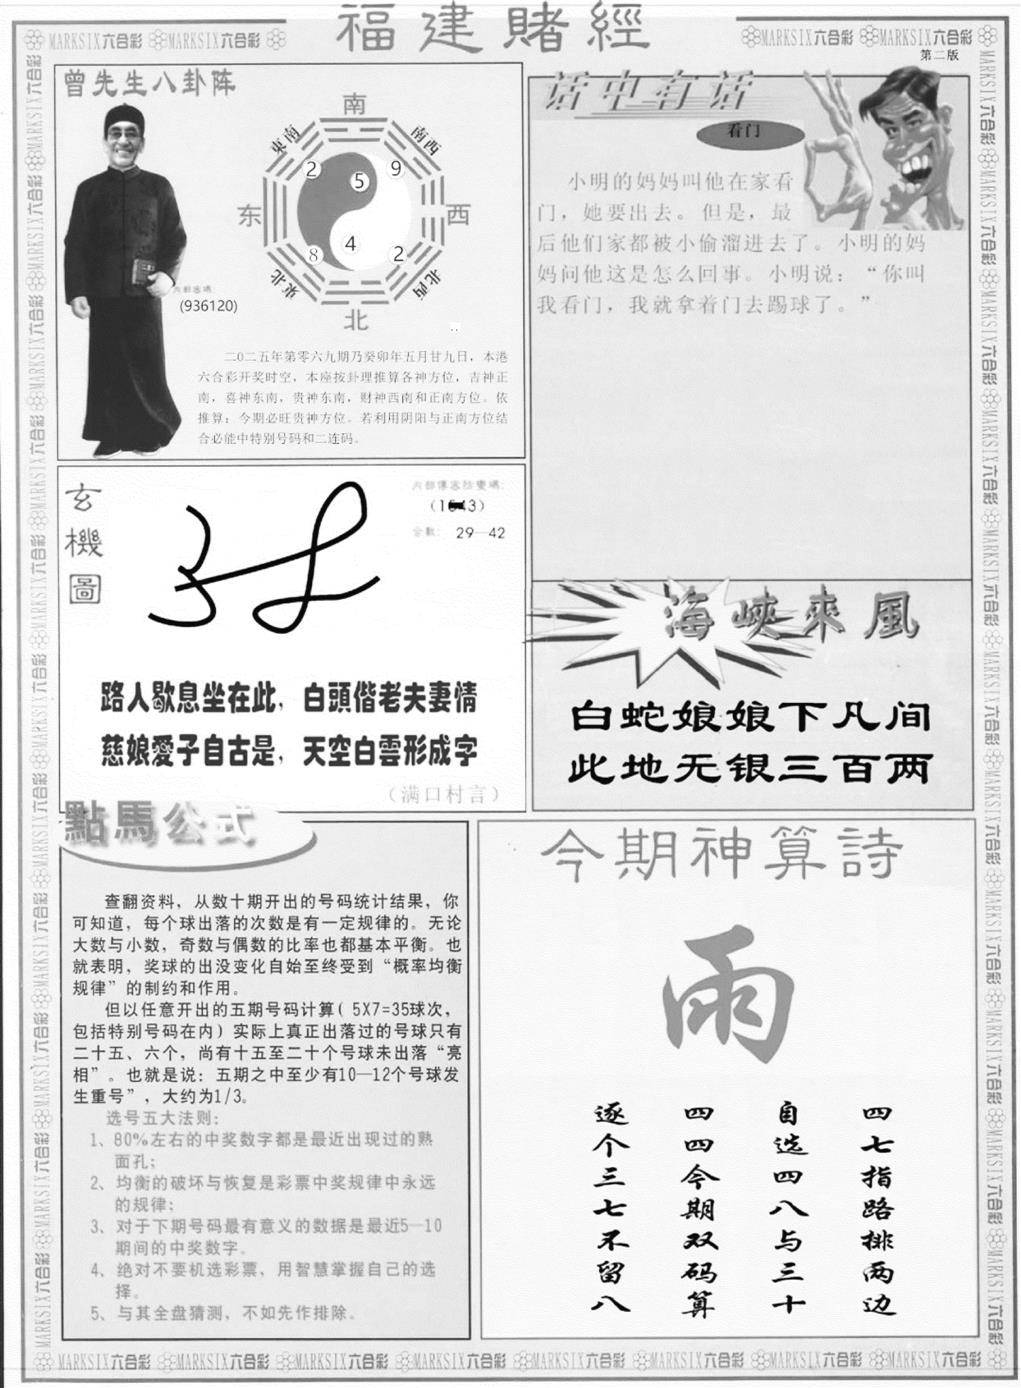 福建賭經
MARKSIX六合彩 MARKSIX六合彩
MARKSIX六合彩 MARKSIX六合彩
第二版
曾先生八卦阵
南
東南
南西
2
5
9
东
西
8
4
2
東北
北西
北
(936120)
二0二五年第零六九期乃癸卯年五月廿九日，本港
六合彩开奖时空，本座按卦理推算各神方位，吉神正
南，喜神东南，贵神东南，财神西南和正南方位。依
推算：今期必旺贵神方位。若利用阴阳与正南方位结
合必能中特别号码和二连码。
话中有话
看门
小明的妈妈叫他在家看
门，她要出去。但是，最
后他们家都被小偷溜进去了。小明的妈
妈问他这是怎么回事。小明说：“你叫
我看门，我就拿着门去踢球了。”
玄機圖
29—42
路人歇息坐在此，白頭偕老夫妻情
慈娘愛子自古是，天空白雲形成字
（满口村言）
海峽來風
白蛇娘娘下凡间
此地无银三百两
點馬公式
查翻资料，从数十期开出的号码统计结果，你
可知道，每个球出落的次数是有一定规律的。无论
大数与小数，奇数与偶数的比率也都基本平衡。也
就表明，奖球的出没变化自始至终受到“概率均衡
规律”的制约和作用。
但以任意开出的五期号码计算( 5X7=35球次，
包括特别号码在内) 实际上真正出落过的号球只有
二十五、六个，尚有十五至二十个号球未出落“亮
相”。也就是说：五期之中至少有10—12个号球发
生重号”，大约为1/3。
选号五大法则：
1、80%左右的中奖数字都是最近出现过的熟
面孔；
2、均衡的破坏与恢复是彩票中奖规律中永远
的规律；
3、对于下期号码最有意义的数据是最近5—10
期间的中奖数字。
4、绝对不要机选彩票，用智慧掌握自己的选
择。
5、与其全盘猜测，不如先作排除。
今期神算詩
雨
四七指路排两边
自选四八与三十
四四今期双码算
逐个三七不留八
MARKSIX六合彩 MARKSIX六合彩 MARKSIX六合彩 MARKSIX六合彩 MARKSIX六合彩 MARKSIX六合彩 MARKSIX六合彩 MARKSIX六合彩